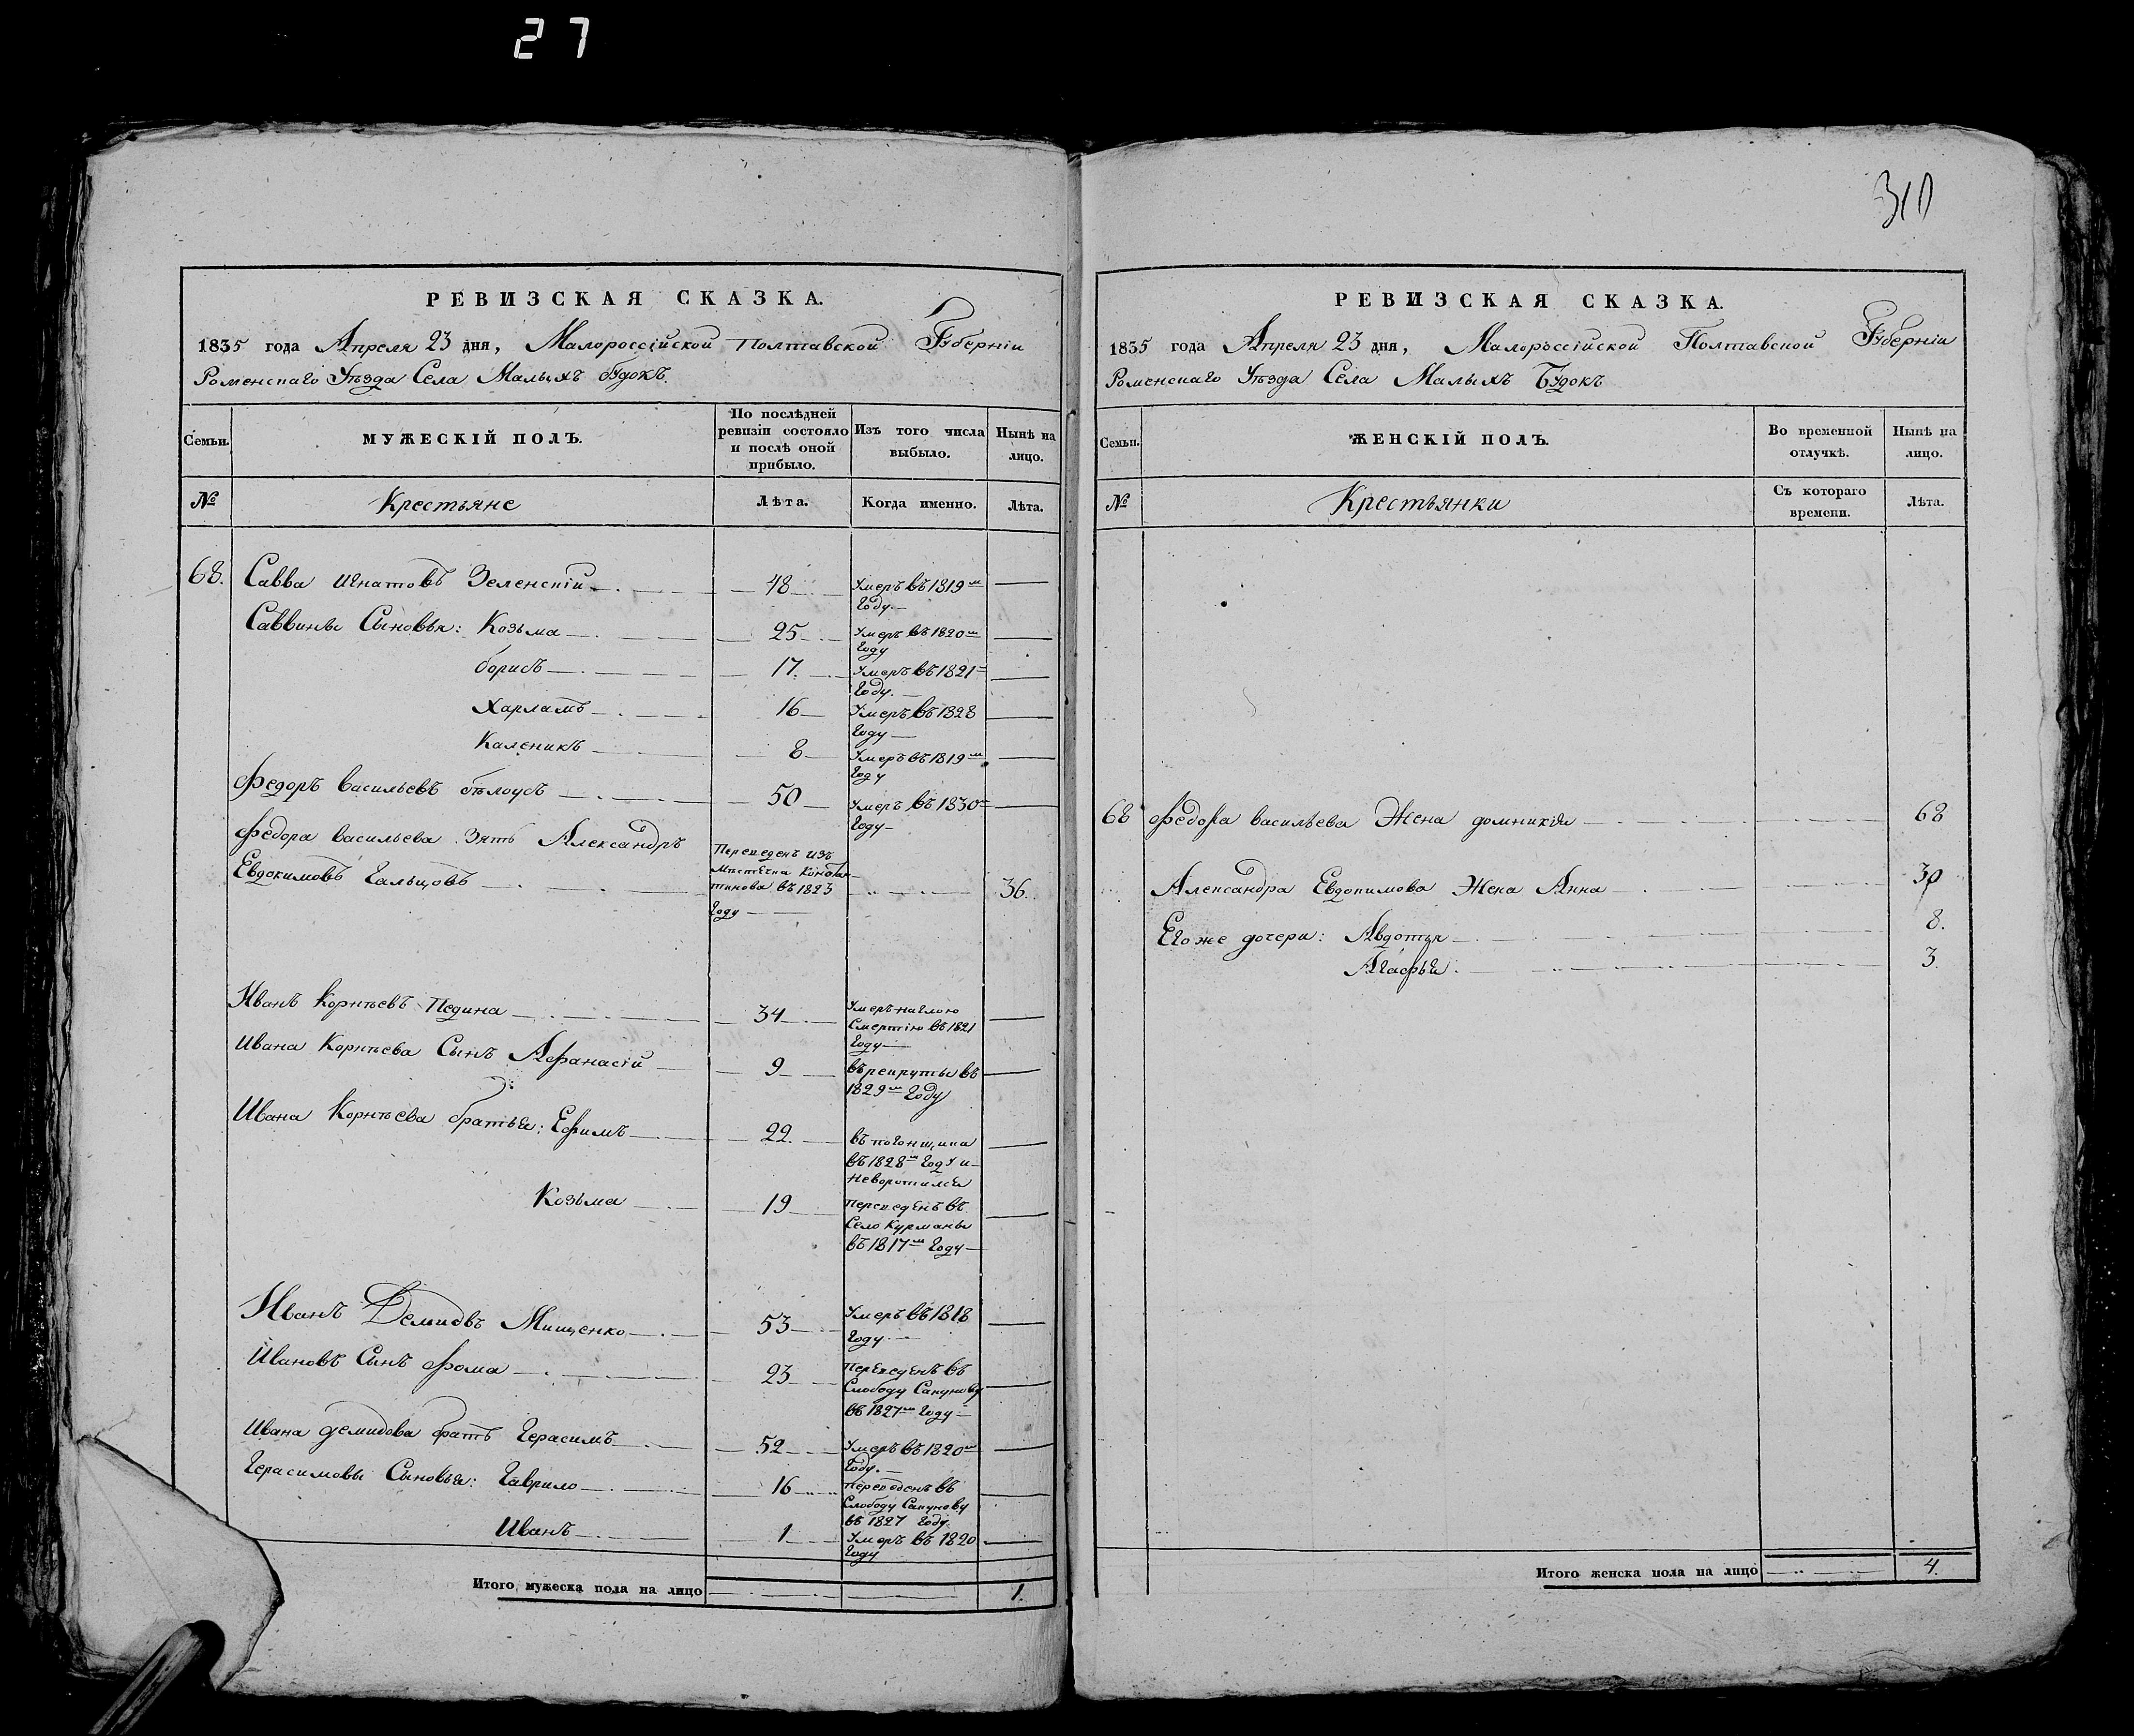 27
310
РЕВИЗСКАЯ СКАЗКА.
1835 года Апреля 23 дня, Малороссійской Полтавской Губерніи
Роменскаго Уѣзда Села Малыхъ будокъ.
Семьи.
МУЖЕСКІЙ ПОЛЪ.
По послѣдней
ревизіи состояло
и послѣ оной
прибыло.
Изъ того числа
выбыло.
Нынѣ на
лицо.
№ Крестьяне Лѣта. Когда именно. Лѣта.
68. Савва игнатовъ Зеленскій 48 Умеръ въ 1819м
году.
Саввины Сыновья: Козьма 25 Умеръ въ 1820м
году
борисъ 17. Умеръ въ 1821м
году.
Харламъ 16 Умеръ въ 1828
году
Каленикъ 8 Умеръ въ 1819м
году
Федоръ васильевъ бѣлоусъ 50 Умеръ въ 1830м
году
Федора васильева зять Александръ
Евдокимовъ гальцовъ
Переведенъ изъ
Мѣстечка Констан-
тинова въ 1823
году
36.
Иванъ Корнѣевъ Педина 34 Умеръ наглою
Смертію въ 1821
году
Ивана Корнѣева Сынъ Афанасій 9 въ рекруты въ
1829м году
Ивана Корнѣева братья: Ефимъ 22. въ погонщика
въ 1828м году и
неворотился
Козьма 19 переведенъ въ
Село Курманы
въ 1817м году
Иванъ Демидовъ Мищенко 53 Умеръ въ 1818
году
Ивановъ Сынъ Фома 23 переведенъ въ
Слободу Сакунову
въ 1827м году
Ивана демидова братъ Герасимъ 52 Умеръ въ 1820м
году.
Герасимовы Сыновья: Гаврило 16 переведенъ въ
Слободу Сакунову
въ 1827 году.
Иванъ 1 Умеръ въ 1820
году
Итого мужеска пола на лицо 1.
РЕВИЗСКАЯ СКАЗКА.
1835 года Апреля 23 дня, Малороссійской Полтавской Губерніи
Роменскаго Уѣзда Села Малыхъ Будокъ
Семьи.
ЖЕНСКІЙ ПОЛЪ.
Во временной
отлучкѣ.
Нынѣ на
лицо.
№ Крестьянки
Съ котораго
времени.
Лѣта.
68 Федора васильева Жена домникія 68
Александра Евдокимова Жена Анна 30
Егоже дочери: Авдотья 8.
Агафья. 3.
Итого женска пола на лицо 4.